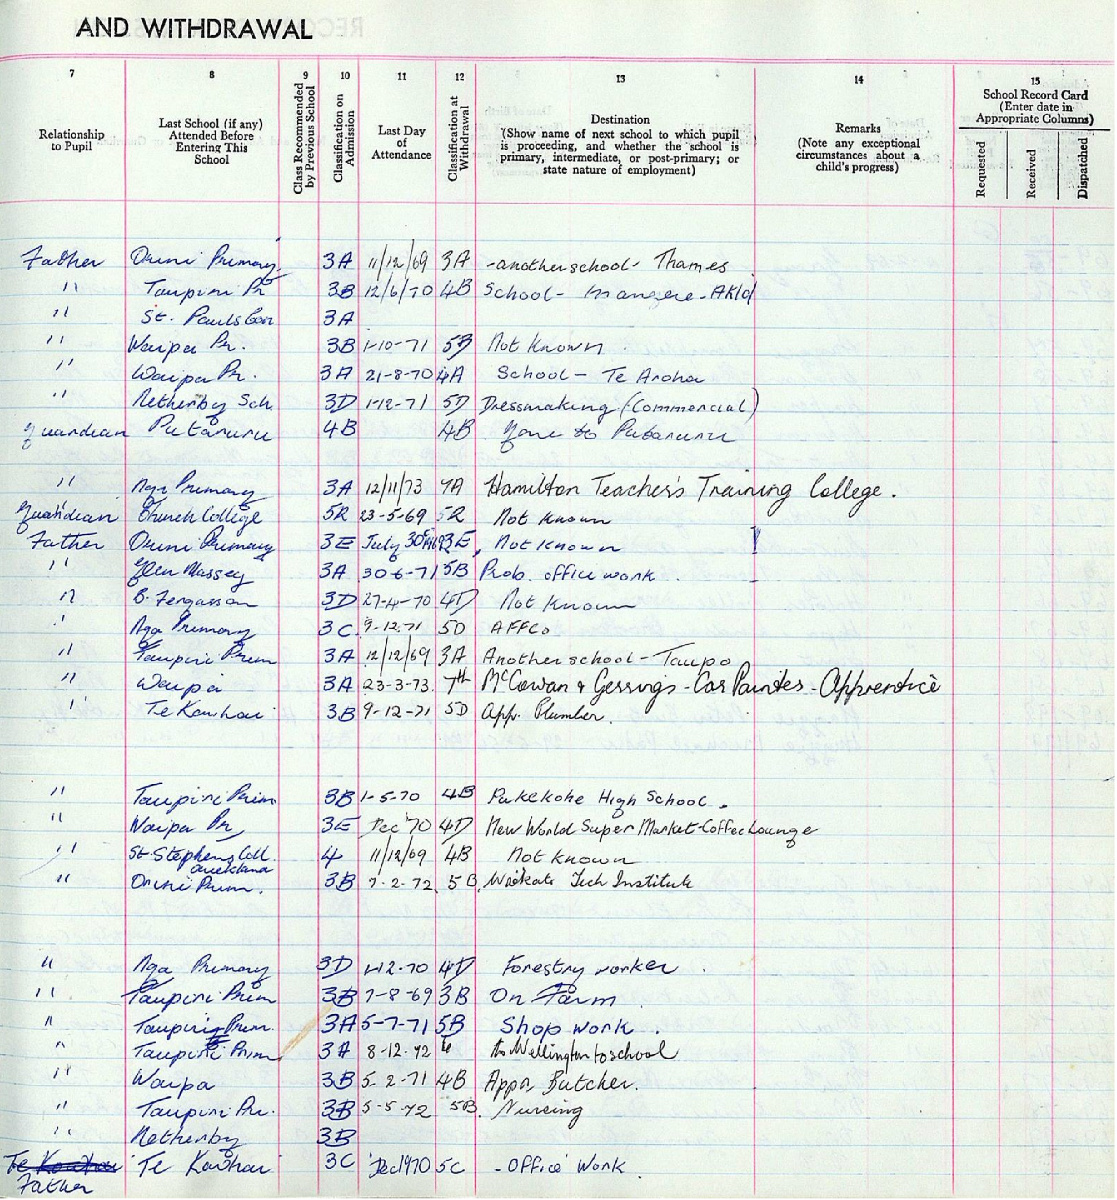 AND WITHDRAWAL
7 8 9 10 11 12 13 14 15
Relationship to Pupil
Last School (if any) Attended Before Entering This School
Class Recommended by Previous School
Classification on Admission
Last Day of Attendance
Classification at Withdrawal
Destination (Show name of next school to which pupil is proceeding, and whether the school is primary, intermediate, or post-primary; or state nature of employment)
Remarks (Note any exceptional circumstances about a child's progress)
School Record Card (Enter date in Appropriate Columns)
Requested
Received
Dispatched
Father Orini Primary 3A 11/12/69 3A -another school- Thames
" Taupiri Pr 3B 12/6/70 4B School - Mangere - Akld
" St. Pauls 3A
" Waipa Pr. 3B 1-10-71 5B Not Known
" Waipa Pr. 3A 21-8-70 4A School - Te Aroha
" Netherby Sch 3D 1-12-71 5D Dressmaking (Commercial)
Guardian Putaruru 4B 4B Gone to Putaruru
" Nga Primary 3A 12/11/73 7A Hamilton Teacher's Training College.
Guardian Church College 5R 23-5-69 5R Not known
Father Orini Primary 3E July 30 3E, Not Known
" Glen Massey 3A 30 6-71 5B Prob. office work.
" B. Fergusson 3D 27-4-70 4D Not Known
" Nga Primary 3C 9-12-71 5D AFFCo
" Taupiri Prim 3A 12/12/69 3A Another school - Taupo
" Waipa 3A 23-3-73. 7th McCowan & - Car Painter - Apprentice
" Te Kowhai 3B 9-12-71 5D App. Plumber.
" Taupiri Prim 3B 1-5-70 4B Pukekohe High School.
" Waipa Pr, 3E Dec '70 4D New World Super Market - Coffee Lounge
" St. Stephens Coll. Auckland 4 11/12/69 4B Not Known
" Orini Prim. 3B 7-2-72. 5B. Waikato Tech Institute
" Nga Primary 3D 1-12-70 4D Forestry worker.
" Taupiri Prim 3B 7-8-69 3B On Farm
" Taupiri Prim. 3A 5-7-71 5B Shop work.
" Taupiri Prim 3A 8-12-72 to Wellington to school
" Waipa 3B 5-2-71 4B Appr. Butcher.
" Taupiri Pr. 3B 5-5-72 5B. Nursing
" Netherby 3B
Te Kowhai Te Kowhai 3C Dec 1970 5C - Office Work
Father